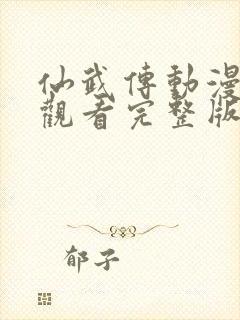 仙武傳動漫
觀看完整版
郁子